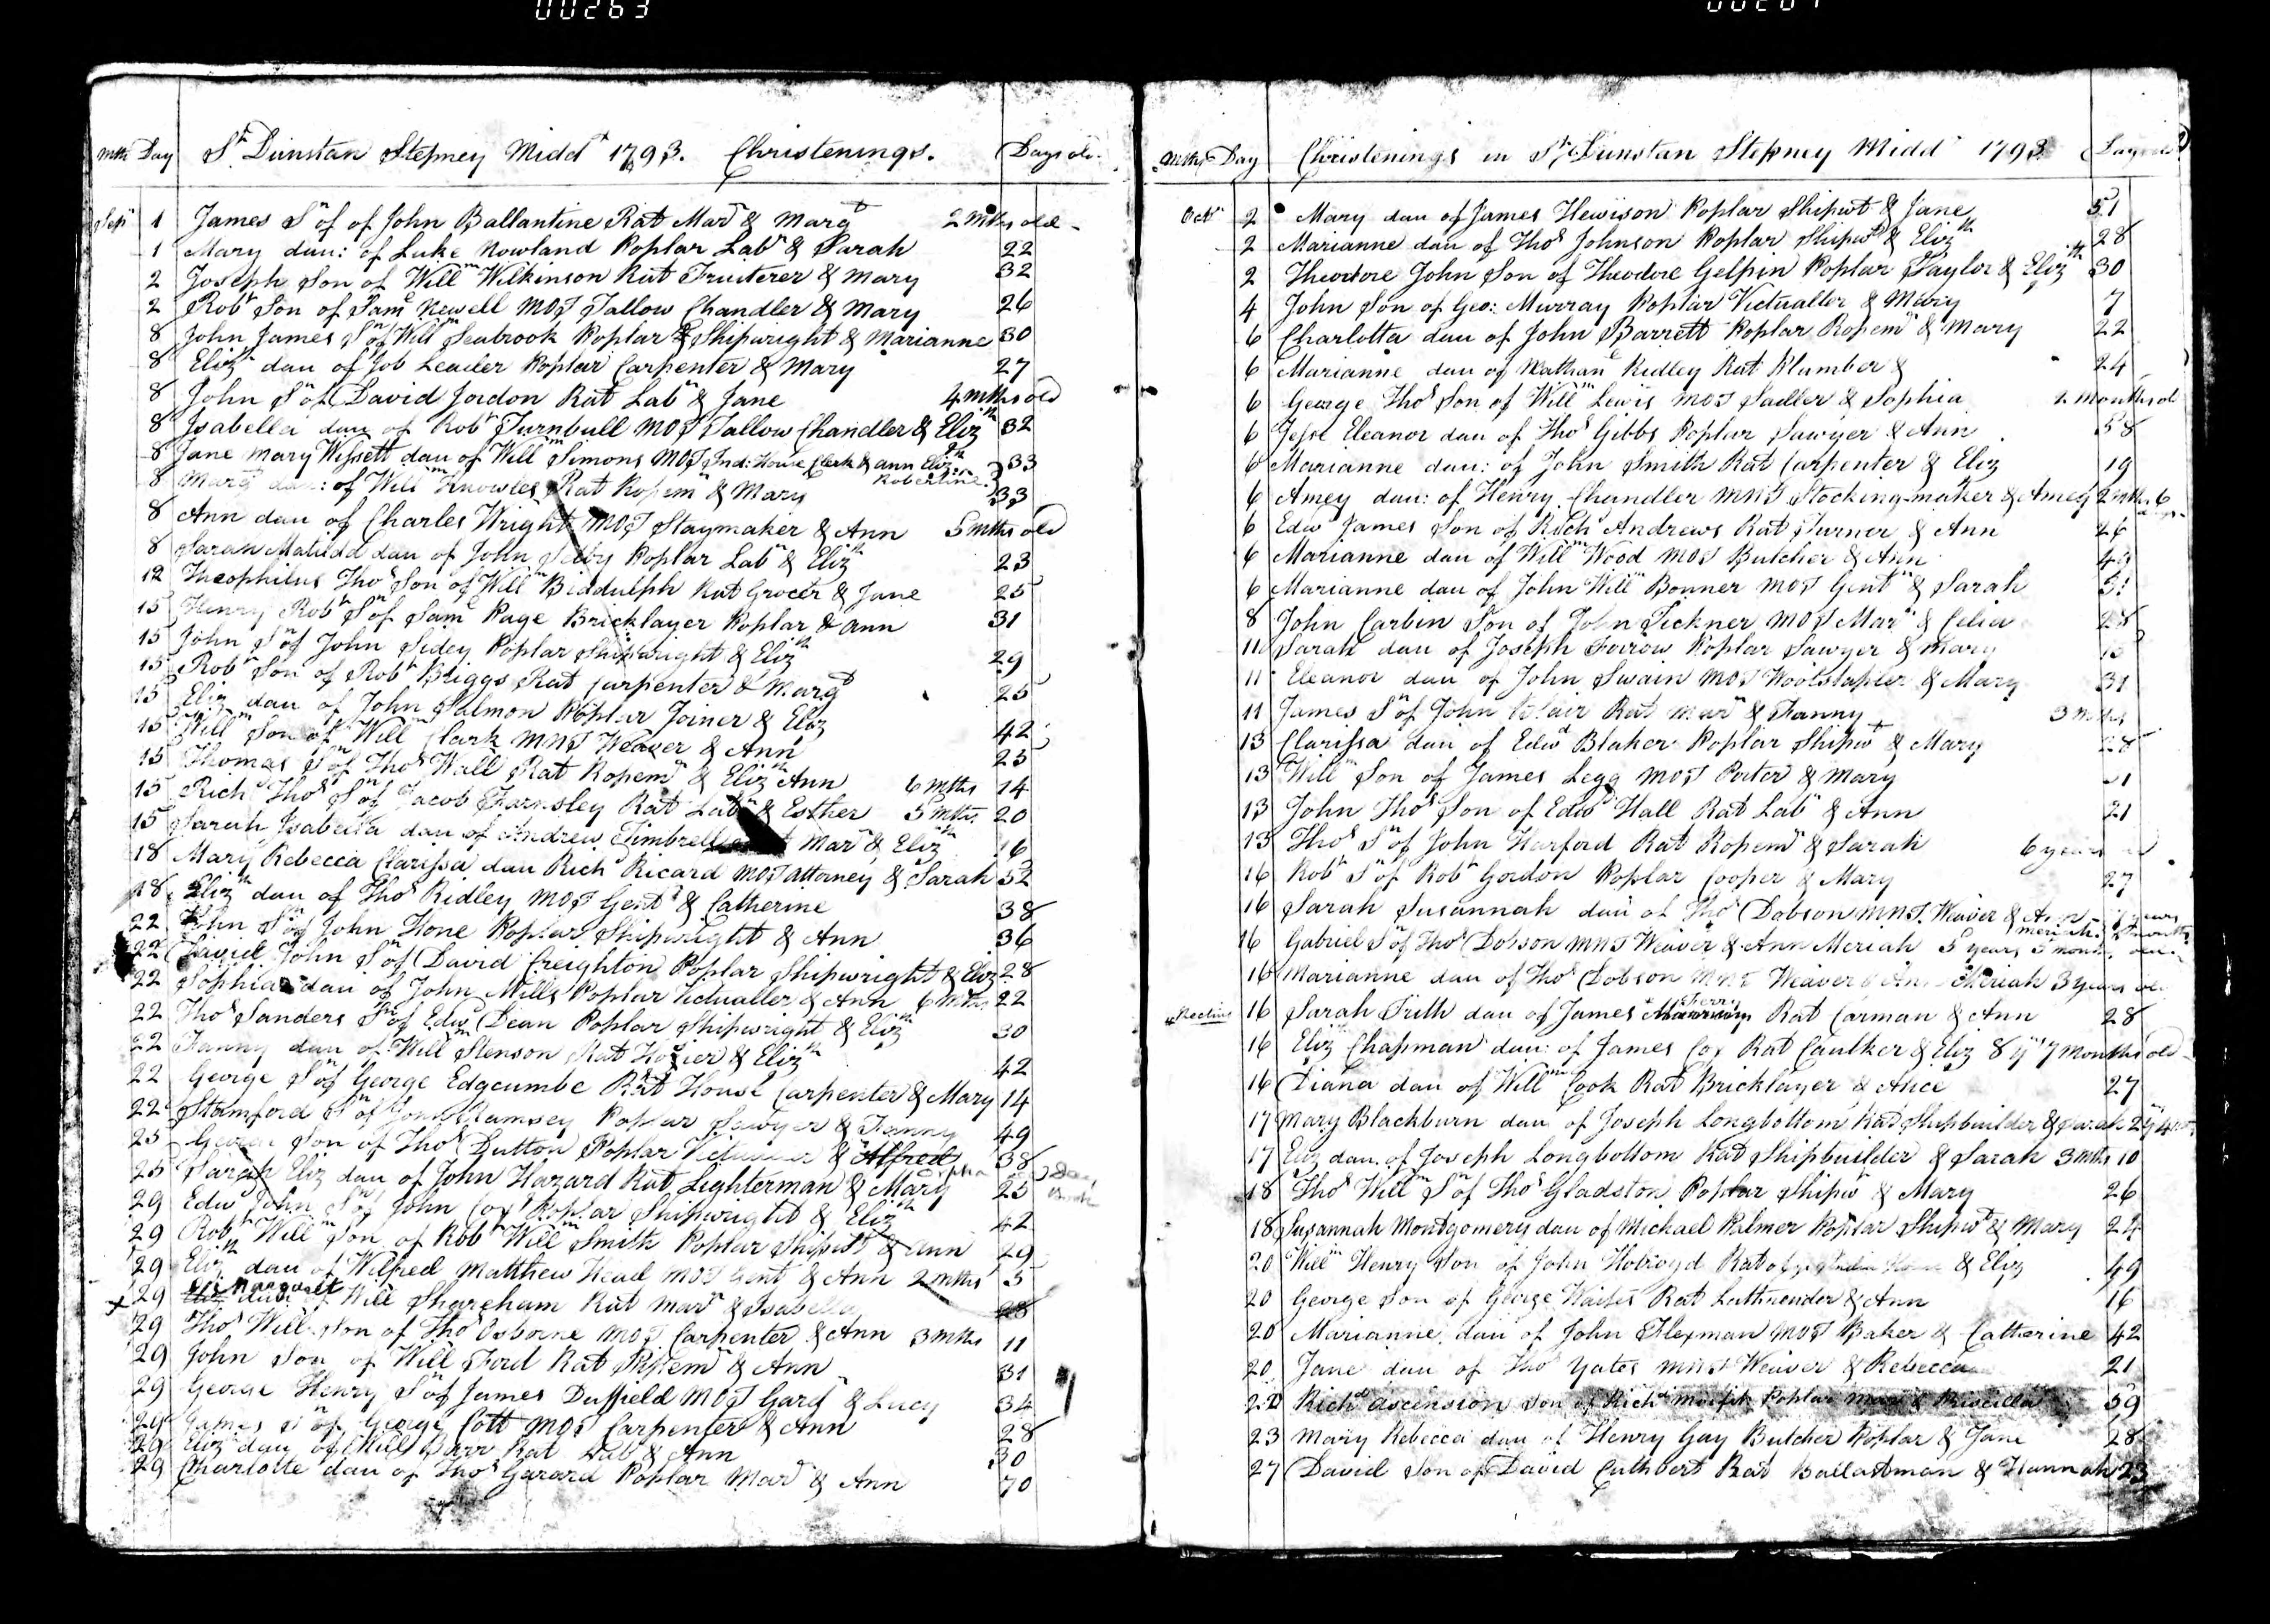 00263
mth Day St Dunstan Stepney Midd 1793. Christenings. Days old.
Sepr 1 James Sn of of John Ballantine Rat Marr & Margt 2 Mths old
1 Mary dau: of Luke Nowland Poplar Labr & Sarah 22
2 Joseph Son of Willm Wilkinson Rat Fruiterer & Mary 32
2 Robt Son of Saml Newell MOT Tallow Chandler & Mary 26
8 John James Sn of Willm Seabrook Poplar Shipwright & Marianne 30
8 Elizth dau of Job Leader Poplar Carpenter & Mary 27
8 John Sn of David Jordon Rat Labr & Jane 4 mths old
8 Isabella dau of Robt Turnbull MOT Tallow Chandler & Elizth 32
8 Jane Mary Wissett dau of Willm Simons MOT Ind: House Clerk & Ann Elizth Robertine 33
8 Margt dau: of Willm Knowles Rat Ropemr & Mary 33
8 Ann dau of Charles Wright MOT Staymaker & Ann 5 mths old
8 Sarah Matilda dau of John Selby Poplar Labr & Elizth 23
12 Theophilus Thos Son of Willm Biddulph Rat Grocer & Jane 25
15 Henry Robt Sn of Saml Page Bricklayer Poplar & Ann 31
15 John Sn of John Sidey Poplar Shipwright & Elizth 29
15 Robt Son of Robt Briggs Rat Carpenter & Margt 25
15 Eliz dau of John Salmon Poplar Joiner & Eliz 42
15 Willm Son of Willm Clark MNT Weaver & Ann 25
15 Thomas Sn of Thos Wall Rat Ropemr & Elizth Ann 6 mths 14
15 Richd Thos Sn of Jacob Farnsley Rat Labr & Esther 5 mths 20
15 Sarah Isabella dau of Andrew Timbrell Marr & Elizth 16
18 Mary Rebecca Clarissa dau Richd Ricard MOT Attorney & Sarah 52
18 Elizth dau of Thos Ridley MOT Gent & Catherine 38
22 John Sn of John Hone Poplar Shipwright & Ann 36
22 David John Sn of David Creighton Poplar Shipwright & Eliz 28
22 Sophia dau of John Mills Poplar Victualler & Ann 6 mths 22
22 Thos Sanders Sn of Edwd Dean Poplar Shipwright & Elizth 30
22 Fanny dau of Willm Stenson Rat Hosier & Elizth 42
22 George Sn of George Edgcumbe Rat House Carpenter & Mary 14
22 Stamford Sn of John Ramsey Poplar Sawyer & Fanny 49
25 George Son of Thos Dutton Poplar Victualler & Alfred 38
25 Sarah Eliz dau of John Hazard Rat Lighterman & Mary 25
29 Edwd John Sn of John Cox Poplar Shipwright & Elizth 42
29 Robt Willm Son of Robt Willm Smith Poplar Shipwt & Ann 29
29 Elizth dau of Wilfred Matthew Head MOT Gent & Ann 2 mths 5
+ 29 Margaret dau of Will Shareham Rat Marr & Isabella 28
29 Thos Will Son of Thos Osborne MOT Carpenter & Ann 3 mths 11
29 John Son of Will Ford Rat Ropemr & Ann 31
29 George Henry Sn of James Duffield MOT Gardr & Lucy 34
29 James Sn of George Cott MOT Carpenter & Ann 28
29 Eliz dau of Will Barr Rat Labr & Ann 30
29 Charlotte dau of Thos Garard Poplar Marr & Ann 70
Mths Day Christenings in St Dunstan Stepney Midd 1793 Days old
Octr 2 Mary dau of James Hewison Poplar Shipwt & Jane 51
2 Marianne dau of Thos Johnson Poplar Shipwt & Elizth 28
2 Theodore John Son of Theodore Gelpin Poplar Taylor & Elizth 30
4 John Son of Geo: Murray Poplar Victualler & Mary 7
6 Charlotta dau of John Barrett Poplar Ropemr & Mary 22
6 Marianne dau of Nathanl Ridley Rat Plumber & 24
6 George Thos Son of Willm Lewis MOT Sadler & Sophia 2 months old
6 Jesse Eleanor dau of Thos Gibbs Poplar Sawyer & Ann 58
6 Marianne dau: of John Smith Rat Carpenter & Eliz 19
6 Amey dau: of Henry Chandler MNT Stocking-maker & Amey 2 mths 6 days
6 Edwd James Son of Richd Andrews Rat Turner & Ann 26
6 Marianne dau of Willm Wood MOT Butcher & Ann 49
6 Marianne dau of John Willm Bonner MOT Gent & Sarah 51
8 John Carbin Son of John Tickner MOT Marr & Celia 28
11 Sarah dau of Joseph Forrow Poplar Sawyer & Mary
11 Eleanor dau of John Swain MOT Woolstapler & Mary 31
11 James Sn of John Blair Rat Marr & Fanny 3 mths
13 Clarissa dau of Edwd Blaker Poplar Shipwt & Mary 28
13 Willm Son of James Legg MOT Porter & Mary
13 John Thos Son of Edwd Hall Rat Labr & Ann 21
13 Thos Sn of John Harford Rat Ropemr & Sarah 6 years
16 Robt Sn of Robt Gordon Poplar Cooper & Mary 27
16 Sarah Susannah dau of Thos Dobson MNT Weaver & Ann Meriah years months
16 Gabriel Sn of Thos Dobson MNT Weaver & Ann Meriah 5 years 5 months
16 Marianne dau of Thos Dobson MNT Weaver & Ann Meriah 3 years old
16 Sarah Frith dau of James Sherry Rat Carman & Ann 28
16 Eliz Chapman dau: of James Cox Rat Caulker & Eliz 8 yrs 7 months old
16 Diana dau of Willm Cook Rat Bricklayer & Alice 27
17 Mary Blackburn dau of Joseph Longbottom Rat Shipbuilder & Sarah 2 y 4 m
17 Eliz dau. of Joseph Longbottom Rat Shipbuilder & Sarah 3 mths 10
18 Thos Willm Sn of Thos Gladston Poplar Shipwt & Mary 26
18 Susannah Montgomery dau of Michael Palmer Poplar Shipwt & Mary 24
20 Willm Henry Son of John Holroyd Rat & Eliz 49
20 George Son of George Waites Rat Lathrender & Ann 16
20 Marianne dau of John Flexman MOT Baker & Catherine 42
20 Jane dau of Thos Yates MNT Weaver & Rebecca 21
22 Richd Ascension Son of Richd Poplar Marr & Priscilla 59
23 Mary Rebecca dau of Henry Gay Butcher Poplar & Jane 28
27 David Son of David Cuthbert Rat Ballastman & Hannah 23